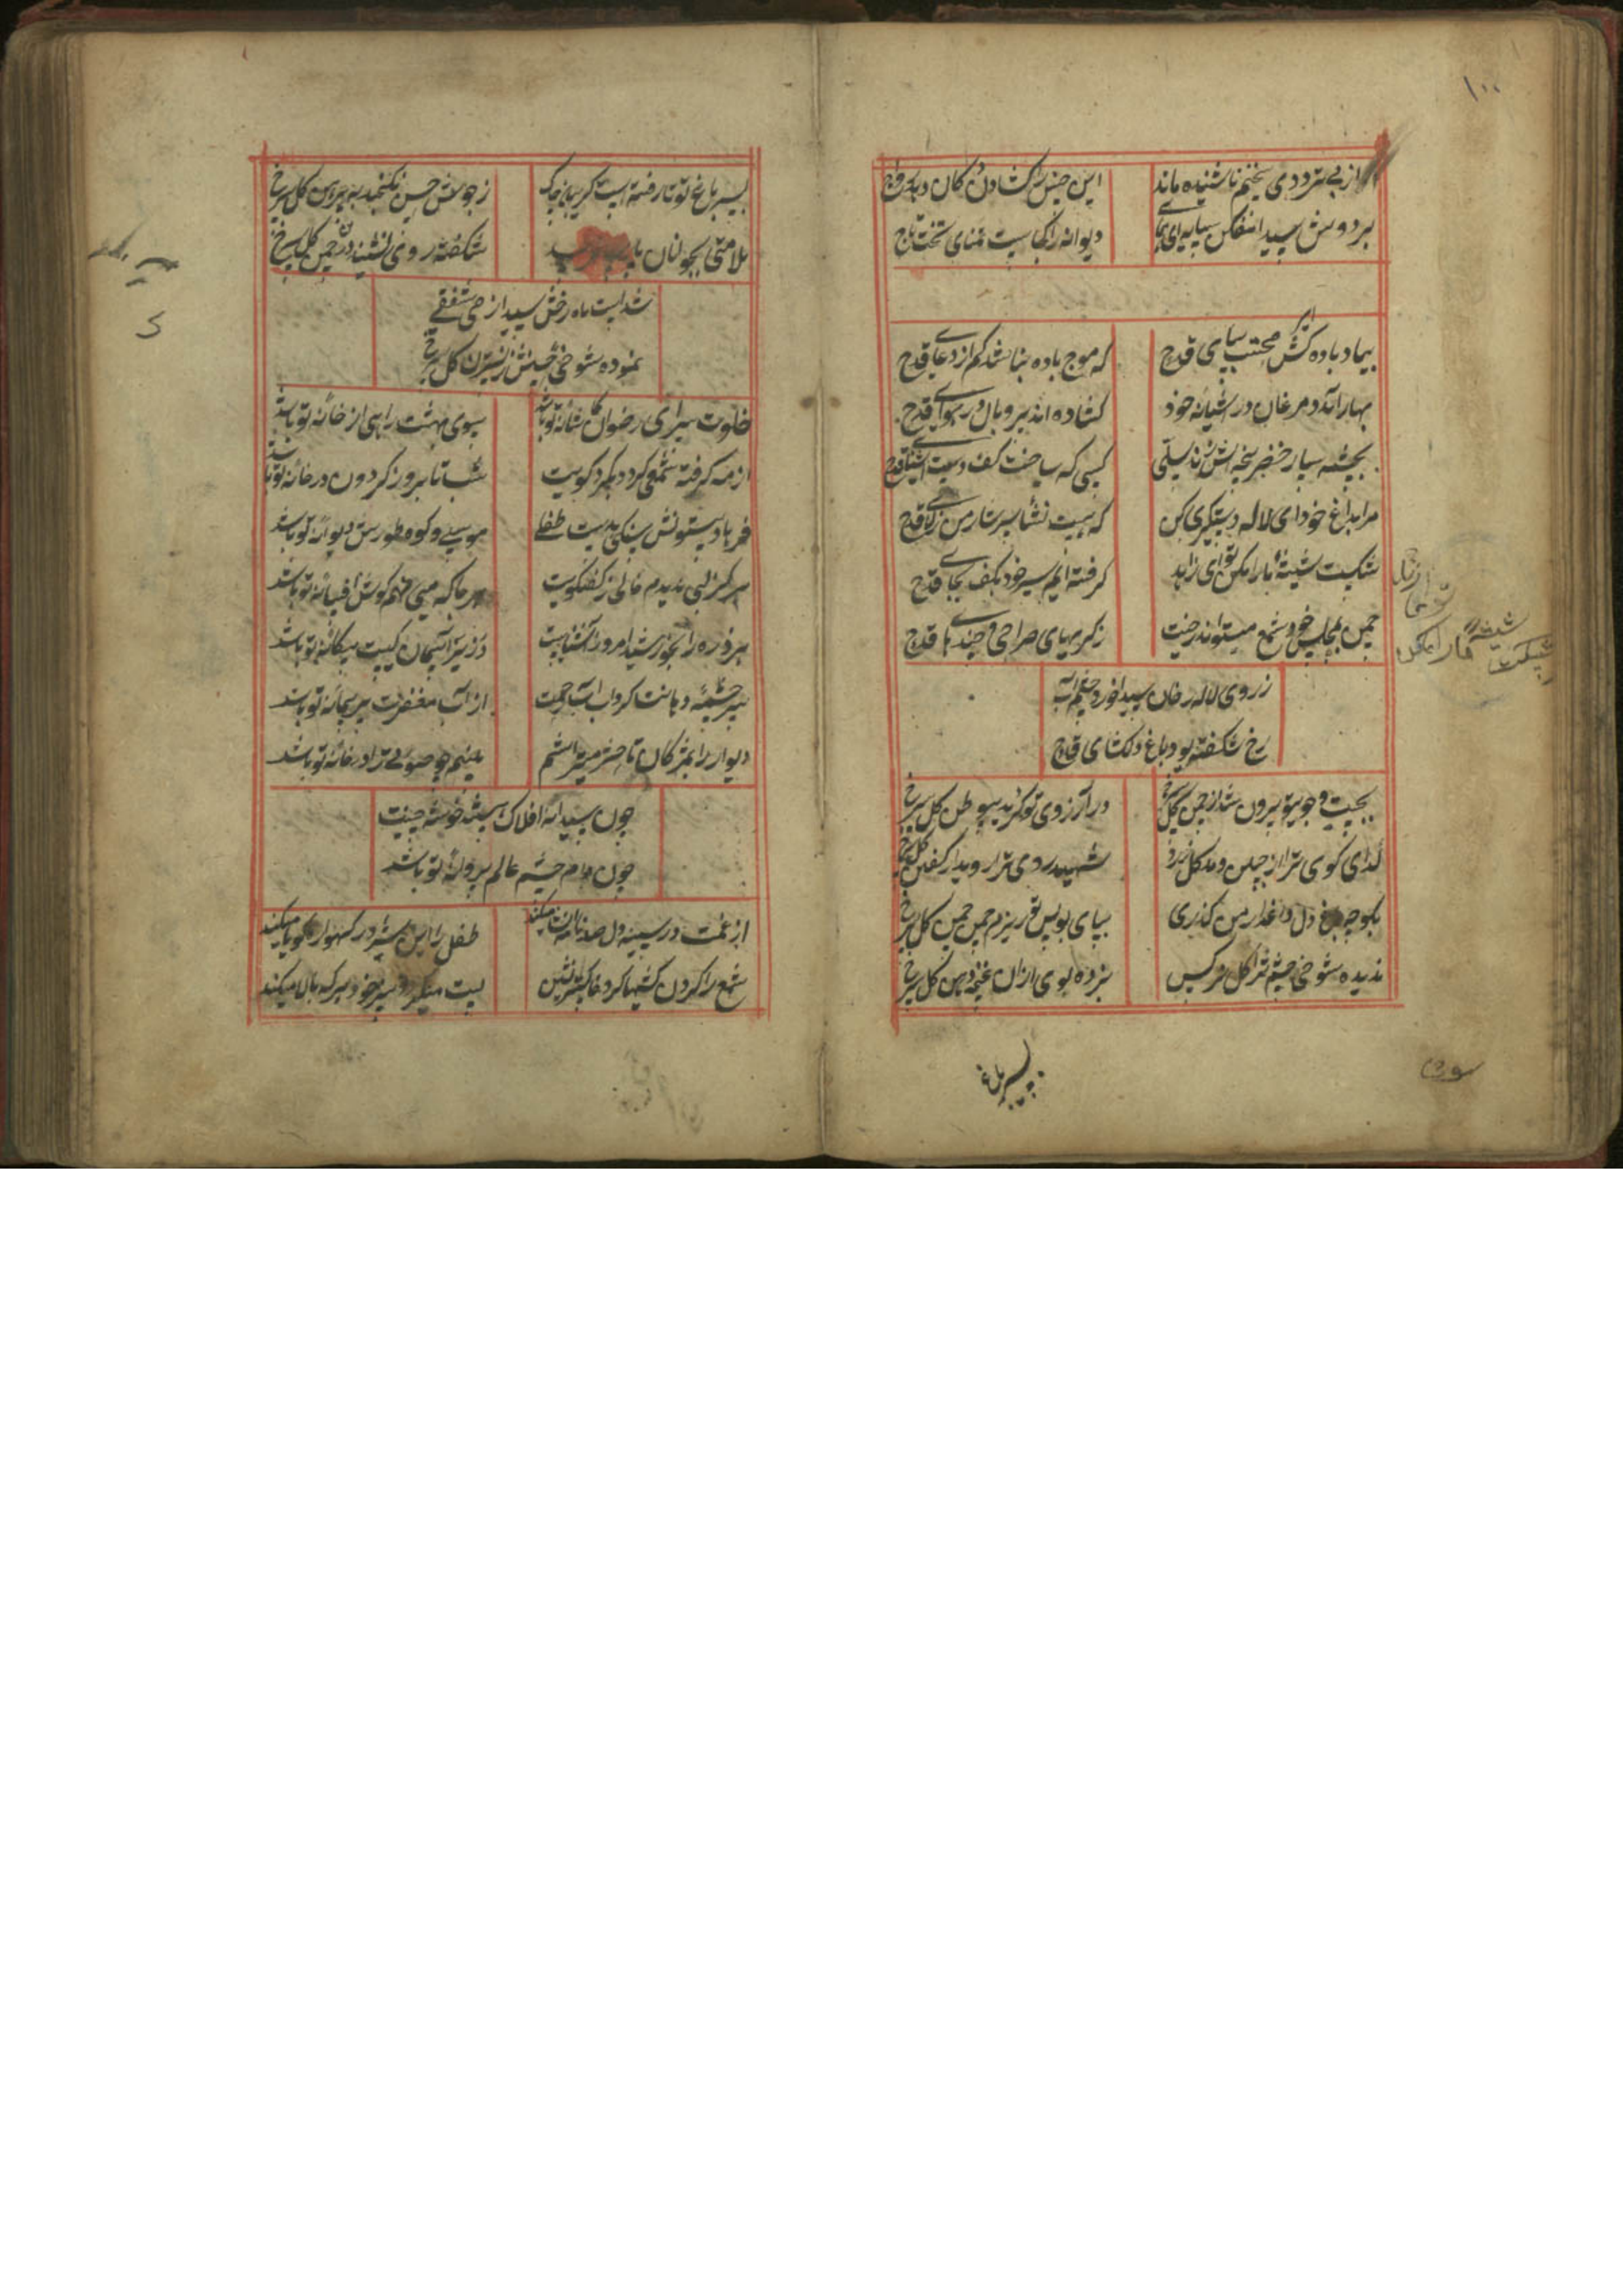 ۱۰۰
از بی ترددی سخنم ناشنیده ماند
این جنس را گشادن دکان رواج
بر دوش سید افکن سایه ای هما
دیوانه را کجاست تمنای تخت و تاج
بیاد باده کش محتسب بپای قدح
که موج باده نباشد کم از دعای قدح
بهار آمد و مرغان در آشیانه خود
گشاده اند پر و بال در هوای قدح
بچشمه سار خضر پنجه اش زند سیلی
کسی که ساخت کف دست آشنا قدح
مرا بداغ خود ای لاله دستگیری کن
که هست نشأ سرشار من ز لای قدح
شکست شیشهٔ ما را مکن تو ای زاهد
گرفته ایم سر خود بکف بجای قدح
چمن بمجلس خود شمع میتواند ریخت
ز گریهای صراحی و خندهای قدح
ز روی لاله رخان سیدا خورد چشم آب
رخ شکفته بود باغ دلکشای قدح
بجست و جوی تو بیرون شد از چمن گل سرخ
در آرزوی تو گردید بیوطن گل سرخ
گدای کوی ترا از چمن دمد گل زرد
شهید روی ترا روید از کفن گل سرخ
بکوچه باغ دل داغدار من گذری
بپای بوس تو ریزم چمن چمن گل سرخ
ندیده شوخی چشم ترا گل نرگس
نبرده بوی از آن غنچه دهن گل سرخ
بسیر باغ
شکست شیشهٔ ما را مکن
بسیر باغ تو تا رفته است گریبان چاک
ز جوش حسن نگنجد به پیرهن گل سرخ
شکفته روی نشیند درین چمن گل سرخ
شد است ماه رخش سیدا ز می شفقی
نموده شوخی خویش ز نسترن گل سرخ
خلوت سرای رضوان کاشانهٔ تو باشد
سوی بهشت راهی از خانهٔ تو باشد
از مه گرفته شمعی گردد بگرد کویت
شب تا بروز گردون در خانهٔ تو باشد
فرهاد بیستونش سنگی بدست طفلی
موسی و کوه طورش دیوانهٔ تو باشد
هرگز لبی ندیدم خالی ز گفتگویت
هر جا که می نهم گوش افسانهٔ تو باشد
هر ذره را بخورشید امروز آشناییست
در زیر آسمان کیست بیگانهٔ تو باشد
سرچشمهٔ دهانت گرداب آب رحمت
از آب مغفرت پر پیمانهٔ تو باشد
دیوار را بمژگان تا حشر میتراشم
بینم چو صورتی را در خانهٔ تو باشد
چون سیدا نه افلاک بیشه خوشه چینت
چون دام چشم عالم بر دانهٔ تو باشد
از غمت در سینه دل صد ناله انشا میکند
طفل را این شیر در گهواره گویا میکند
شمع را گردن کشیها کرد خاکسترنشین
پست میگردد سر خود هر که بالا میکند